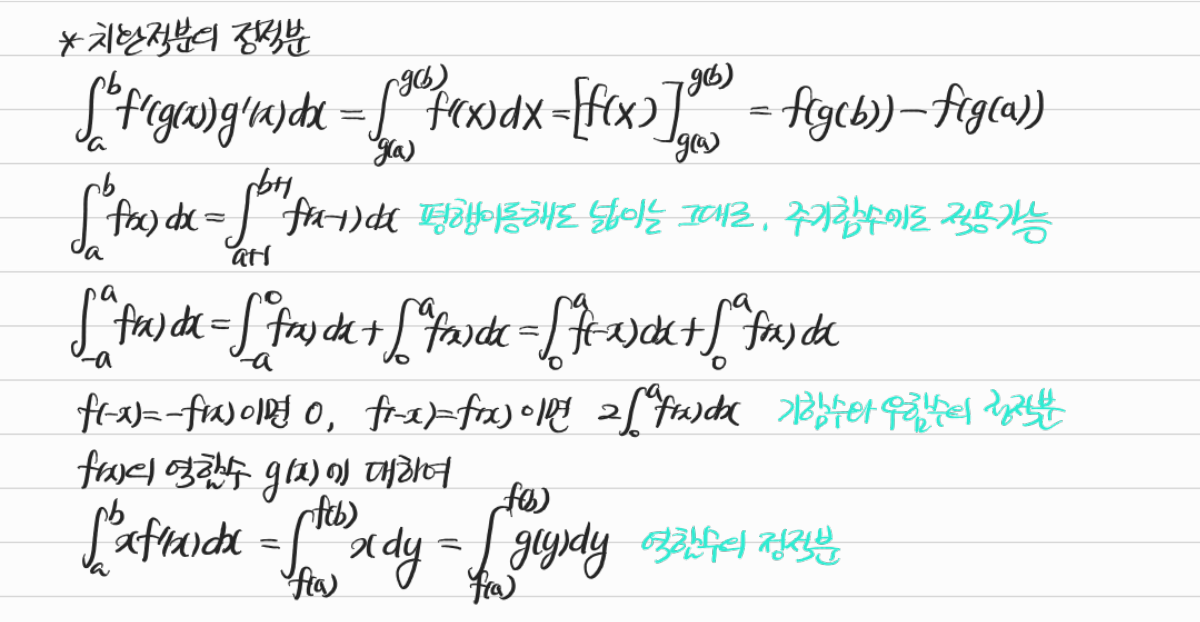 *치환적분의 정적분
∫_a^b f'(g(x))g'(x)dx = ∫_{g(a)}^{g(b)} f'(X)dX = [f(X)]_{g(a)}^{g(b)} = f(g(b)) - f(g(a))
∫_a^b f(x)dx = ∫_{a+1}^{b+1} f(x-1)dx 평행이동해도 넓이는 그대로, 주기함수에도 적용가능
∫_{-a}^a f(x)dx = ∫_{-a}^0 f(x)dx + ∫_0^a f(x)dx = ∫_0^a f(-x)dx + ∫_0^a f(x)dx
f(-x)=-f(x)이면 0, f(-x)=f(x)이면 2∫_0^a f(x)dx 기함수와 우함수의 정적분
f(x)의 역함수 g(x)에 대하여
∫_a^b xf'(x)dx = ∫_{f(a)}^{f(b)} x dy = ∫_{f(a)}^{f(b)} g(y)dy 역함수의 정적분